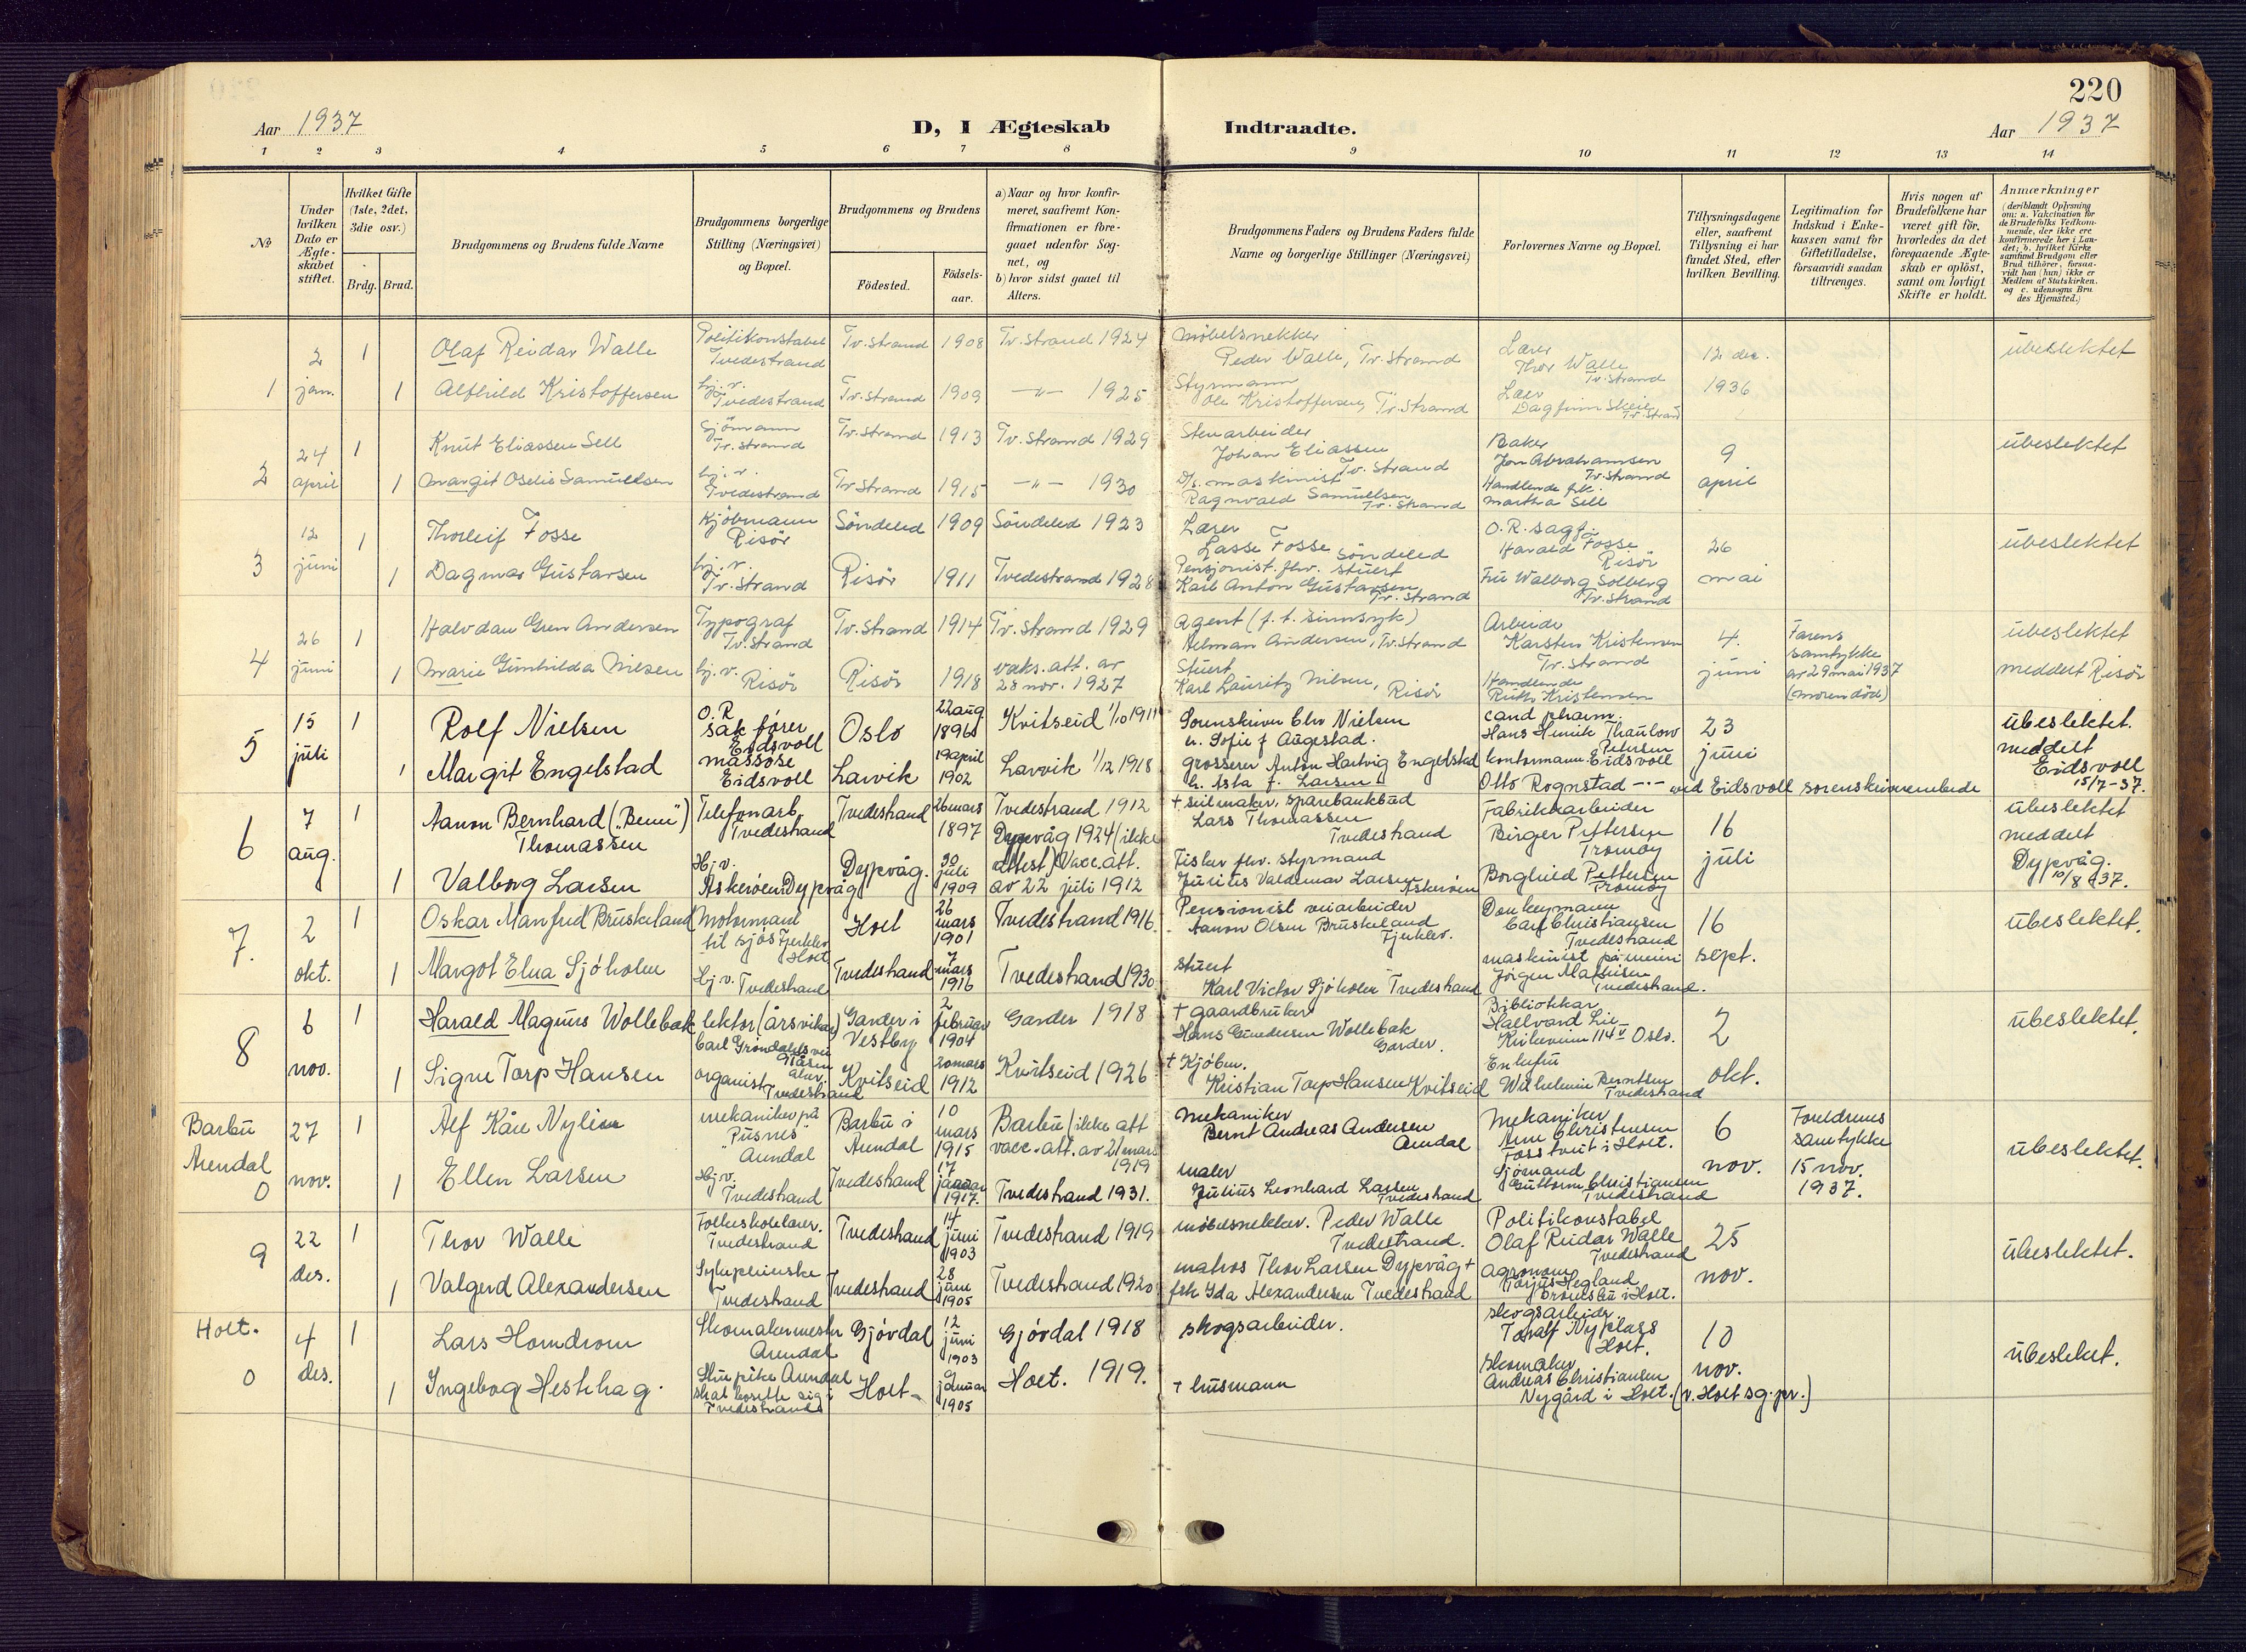 220
Aar 1937
D, I Ægteskab
Indtraadte.
Aar 1937
1 2 3 4 5 6 7 8 9 10 11 12 13 14
No
Under hvilken Dato er Ægteskabet stiftet.
Hvilket Gifte (1ste, 2det, 3die osv.)
Brdg. Brud.
Brudgommens og Brudens fulde Navne
Brudgommens borgerlige Stilling (Næringsvei) og Bopæl.
Brudgommens og Brudens
Födested.
Födselsaar.
a) Naar og hvor konfirmeret, saafremt Konfirmationen er foregaaet udenfor Sognet, og
b) hvor sidst gaaet til Alters.
Brudgommens Faders og Brudens Faders fulde Navne og borgerlige Stillinger (Næringsvei)
Forlovernes Navne og Bopæl.
Tillysningsdagene eller, saafremt Tillysning ei har fundet Sted, efter hvilken Bevilling.
Legitimation for Indskud i Enkekassen samt for Giftetilladelse, forsaavidt saadan tiltrænges.
Hvis nogen af Brudefolkene har været gift för, hvorledes da det foregaaende Ægteskab er oplöst, samt om lovligt Skifte er holdt.
Anmærkninger
(deriblandt Oplysning om: a. Vakcination for de Brudefolks Vedkommende, der ikke ere konfirmerede her i Landet; b. hvilket Kirkesamfund Brudgom eller Brud tilhörer, forsaavidt han (hun) ikke er Medlem af Statskirken. og c. udensogns Brudes Hjemsted.)
1
2 jan.
1 Olaf Reidar Walle
Politikonstabel Tvedestrand
Tv.strand 1908 Tv.strand 1924
Möbelsnekker Peder Walle, Tv.strand
Lærer Thor Walle Tv.strand
12 des. 1936
ubeslektet
1 Alfhild Kristoffersen
hj. v. Tvedestrand
Tv.strand 1909 -"- 1925
Styrmann Ole Kristoffersen, Tv.strand
Lærer Dagfinn Skeie Tv.strand
2
24 april
1 Knut Eliassen Sell
Sjömann Tv.strand
Tv.strand 1913 Tv.strand 1929
Stenarbeider Johan Eliassen Tv.strand
Baker Jon Abrahamsen Tv.strand
9 april
ubeslektet
1 Margit Oselie Samuelsen
hj. v. Tvedestrand
Tv.strand 1915 -"- 1930
D/s. maskinist Ragnvald Samuelsen Tv.strand
Handlende frk. Martha Sell
3
12 juni
1 Thorleif Fosse
Kjöbmann Risör
Söndeled 1909 Söndeled 1923
Lærer Lasse Fosse Söndeled
O.R.sagf. Harald Fosse Risör
26 mai
ubeslektet
1 Dagmar Gustavsen
hj. v. Tv.strand
Risör 1911 Tvedestrand 1928
Pensjonist. fhv. stuert Karl Anton Gustavsen Tv.strand
Fru Walborg Solberg Tv.strand
4
26 juni
1 Halvdan Gren Andersen
Typograf Tv.strand
Tv.strand 1914 Tv.strand 1929
Agent (f. t. sinnsyk) Helman Andersen, Tv.strand
Arbeider Karsten Kristensen Tv.strand
4. juni
Farens samtykke av 29 mai 1937 (moren död)
ubeslektet
meddelt Risör
1 Marie Gunhilda Nilsen
hj. v. Risör
Risör 1918 vaks. att. av 28 nov. 1927
Stuert Karl Lauritz Nilsen, Risör
Handlende Ruth Kristensen
5
15 juli
1 Rolf Nielsen
O.R sakförer Eidsvoll
Oslo 22 aug 1896 Kvitseid 1/10 1911
Sorenskriver Chr Nielsen h. Sofie f Augestad.
cand pharm. Hans Henrik Thaulow Petersen Eidsvoll
23 juni
ubeslektet.
meddelt Eidsvoll 15/7-37.
1 Margit Engelstad
massöse Eidsvoll
Larvik 19 april 1902 Larvik 1/12 1918
grosserer Anton Hartvig Engelstad h. Asta f. Larsen
kontormann Otto Rognstad -"- ved Eidsvoll sorenskriverembede
6
7 aug.
1 Aanon Bernhard ("Benni") Thomassen
Telefonarb. Tvedestrand
Tvedestrand 26 mars 1897 Tvedestrand 1912
+ seilmaker, sparebankbud Lars Thomassen Tvedestrand
Fabrikkarbeider Birger Pettersen Tromöy
16 juli
ubeslektet
meddelt Dypvåg. 10/8 1937.
1 Valborg Larsen
Hj.v. Askeröen Dypvåg
Dypvåg. 30 juli 1909 Dypvåg 1924 (ikke attest) Vacc.att. av 22 juli 1912
Fisker fhv. styrmand Juritis Valdemar Larsen Askeröen
Borghild Pettersen Tromöy
7.
2 okt.
1 Oskar Manfred Bruskeland
Motormand til sjös Fjerkleiv Holt
Holt 26 mars 1901 Tvedestrand 1916.
Pensionist veiarbeider Aanon Olsen Bruskeland Fjerklev.
Donkeymann Carl Christiansen Tvedestrand
16 sept.
ubeslektet.
1 Margot Elna Sjöholm
Hj v. Tvedestrand
Tvedestrand 7 mars 1916 Tvedestrand 1930
stuert Karl Victor Sjöholm Tvedestrand
maskinist på meieri Jörgen Mathisen Tvedestrand.
8
6 nov.
1 Harald Magnus Wollebæk
lektor (årsvikar) Carl Gröndahls vei
Garder i Vestby 2 februar 1904 Garder 1918
+ gaardbruker Hans Gundersen Wollebæk Garder.
Bibliotekar Hallvard Lie Kirkeveien 114 V Oslo.
2 okt.
ubeslektet.
1 Signe Torp Hansen
organist Tvedestrand
Kvitseid 20 mars 1912 Kvitseid 1926
+ Kjöbm. Kristian Torp Hansen Kvitseid
Enkefru Wilhelmine Berntsen Tvedestrand
Barbu Arendal
0
27 nov.
1 Alf Kåre Nylien
mekaniker på "Pusnes" Arendal
Barbu i Arendal 10 mars 1915 Barbu (ikke att vacc.att. av 21 mars 1919
Mekaniker Bernt Andreas Andersen Arendal
Mekaniker Arne Christensen Fosstveit i Holt.
6 nov.
Foreldrenes samtykke 15 nov. 1937.
ubeslektet.
1 Ellen Larsen
Hj.v. Tvedestrand
Tvedestrand 17 januar 1917. Tvedestrand 1931.
maler Julius Leonhard Larsen Tvedestrand
Sjömand Guttorm Christiansen Tvedestrand
9
22 des.
1 Thor Walle
Folkeskolelærer. Tvedestrand
Tvedestrand 14 juni 1903 Tvedestrand 1919
möbelsnekker. Peder Walle Tvedestrand.
Politikonstabel Olaf Reidar Walle Tvedestrand
25 nov.
ubeslektet.
1 Valgerd Alexandersen
Sykepleierske Tvedestrand
Tvedestrand 28 juni 1905 Tvedestrand 1920
matros Thor Larsen Dypvåg + frk Ida Alexandersen Tvedestrand
agronom Torjus Hegland i Holt.
Holt.
0
4 des.
1 Lars Homdrom
Skomakermester Arendal
Gjövdal 12 juni 1903 Gjövdal 1918
skogsarbeider.
skogsarbeider Toralf Nyplass Holt.
10 nov.
ubeslektet.
1 Ingebog Heskhag.
Stuepike Arendal skal bosette sig i Tvedestrand
Holt 9 januar 1905 Holt. 1919.
+ husmann
skomaker Andreas Christiansen Nygård i Holt. (v. Holt sg.pr.)